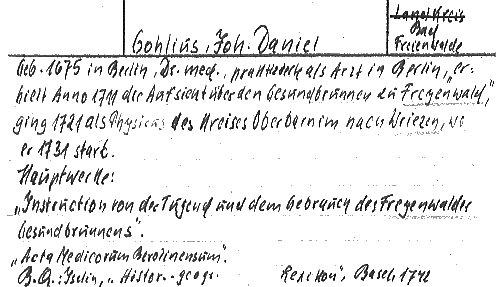 Land Kreis
Bad
Freienwalde
Gohlius, Joh. Daniel
Geb. 1675 in Berlin, Dr. med., praktizierte als Arzt in Berlin, „er-
hielt Anno 1711 die Aufsicht über den Gesundbrunnen zu Freyenwald,"
ging 1721 als Physicus des Kreises Oberbarnim nach Wriezen, wo
er 1731 starb.
Hauptwerke:
„Instruction von der Tugend und dem Gebrauch des Freyenwalder
Gesundbrunnens".
„Acta Medicorum Berolinensum".
B.Q.: Iselin, „Histor.-geogr. Lexikon", Basel 1742